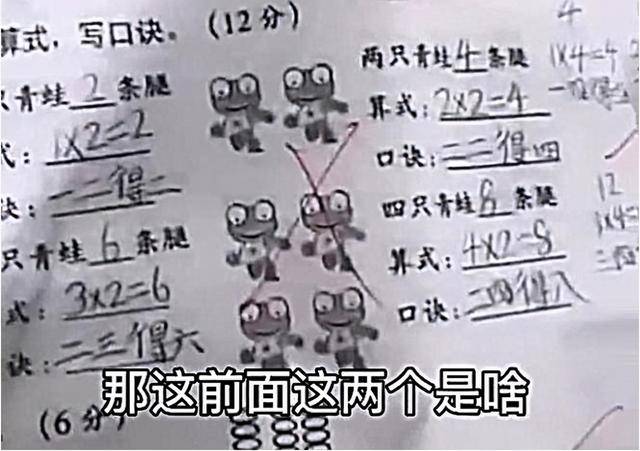 算式，写口诀。（12分）
只青蛙2条腿
式：1×2=2
诀：一二得二
只青蛙6条腿
式：3×2=6
诀：二三得六
（6分）
两只青蛙4条腿
算式：2×2=4
口诀：二二得四
四只青蛙8条腿
算式：4×2=8
口诀：二四得八
4
1×4=4
12
那这前面这两个是啥